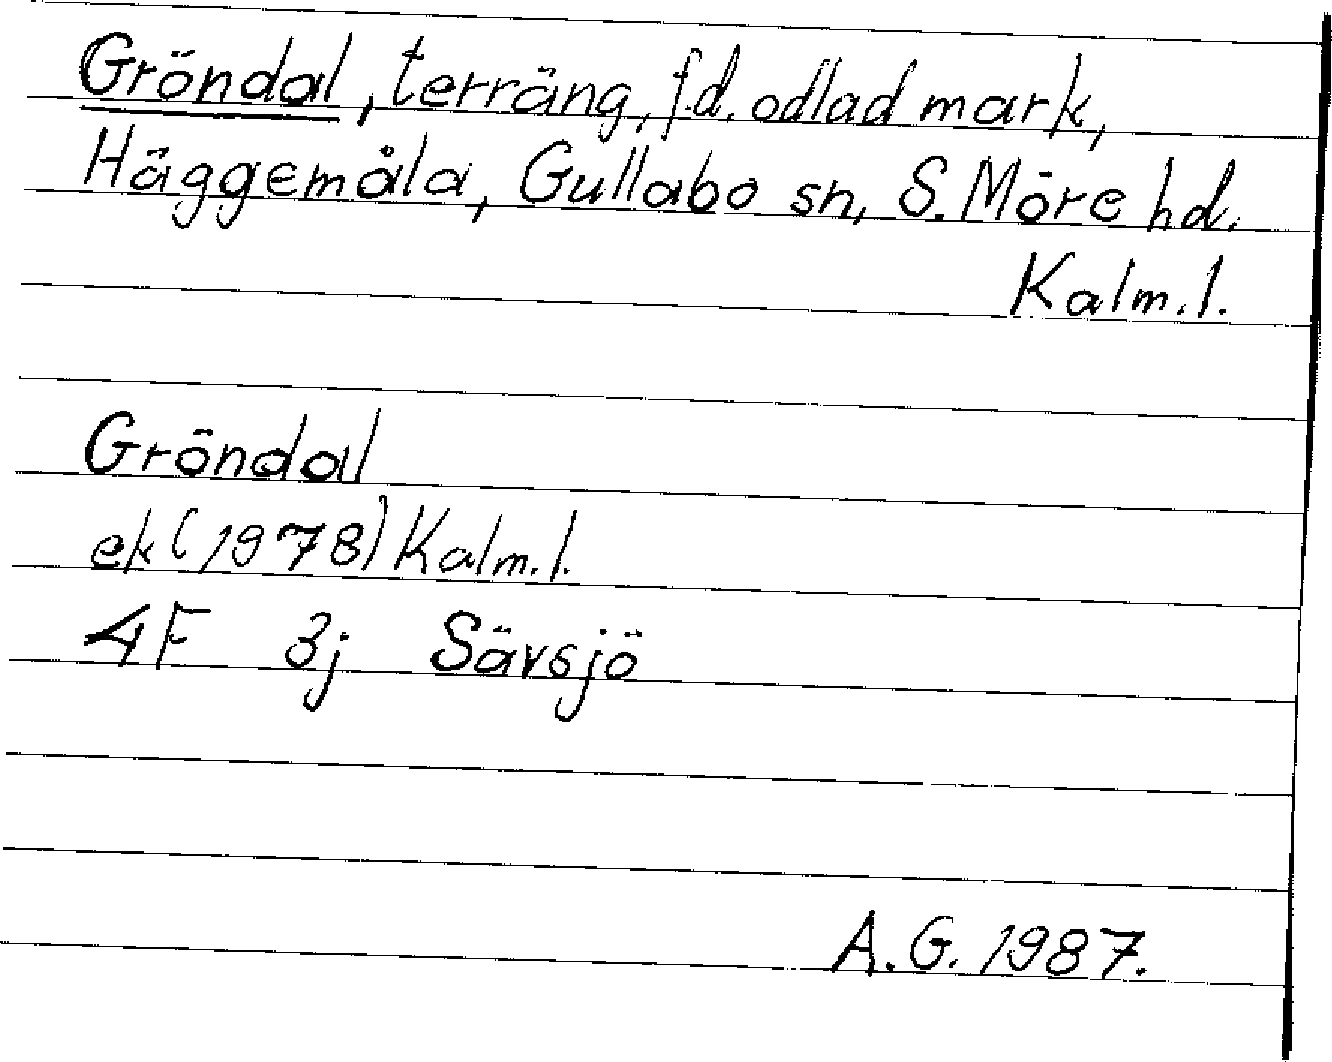 Gröndal, terräng, f.d. odlad mark,
Häggemåla, Gullabo sn, S. Möre hd.
Kalm. l.
Gröndal
ek (1978) Kalm. l.
4F 3j Sävsjö
A.G. 1987.